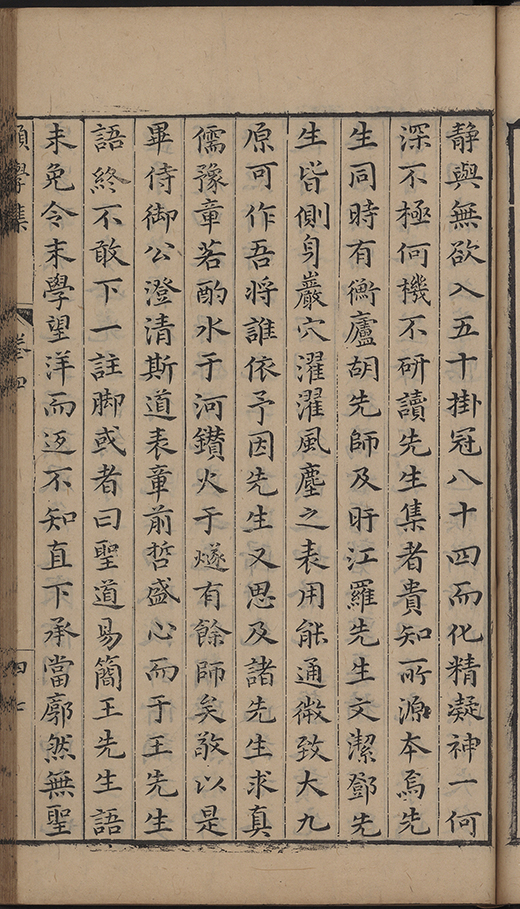 靜與無欲入五十掛冠八十四而化精凝神一何
深不極何機不研讀先生集者貴知所源本焉先
生同時有衡廬胡先師及盱江羅先生文潔鄧先
生皆側身巖穴濯濯風塵之表用能通微致大九
原可作吾將誰依予因先生又思及諸先生求真
儒豫章若酌水于河鑚火于燧有餘師矣敬以是
畢侍御公澄清斯道表章前哲盛心而于王先生
語終不敢下一註脚或者曰聖道易簡王先生語
未免令末學望洋而返不知直下承當廓然無聖
學集 卷四 四七